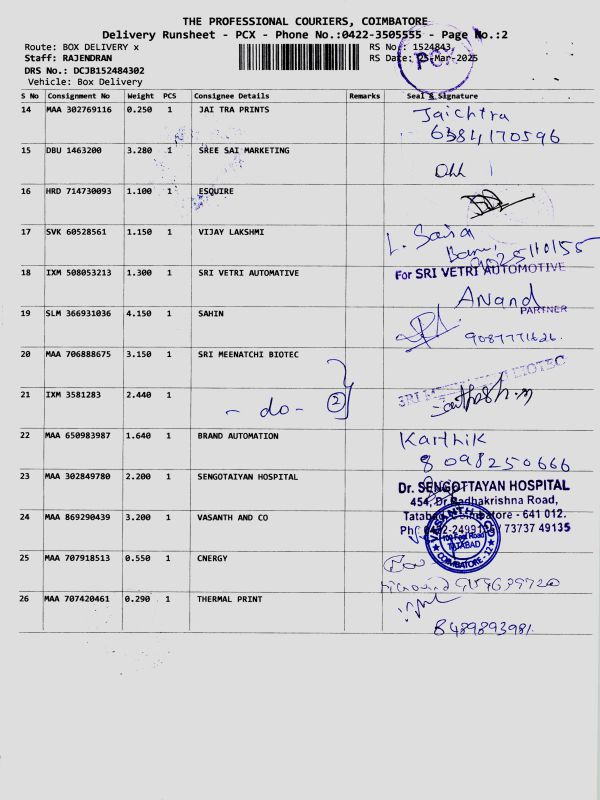 THE PROFESSIONAL COURIERS, COIMBATORE
Delivery Runsheet - PCX - Phone No.:0422-3505555 - Page No.:2
Route: BOX DELIVERY x
RS No.: 1524843
Staff: RAJENDRAN
RS Date: 25-Mar-2025
PCX
DRS No.: DCJB152484302
Vehicle: Box Delivery
S No Consignment No Weight PCS Consignee Details Remarks Seal & Signature
14 MAA 302769116 0.250 1 JAI TRA PRINTS
Jaichtra
6384170596
15 DBU 1463200 3.280 1 SREE SAI MARKETING
16 HRD 714730093 1.100 1 ESQUIRE
17 SVK 60528561 1.150 1 VIJAY LAKSHMI
18 IXM 508053213 1.300 1 SRI VETRI AUTOMATIVE
For SRI VETRI AUTOMOTIVE
Anand
PARTNER
19 SLM 366931036 4.150 1 SAHIN
9087771626.
20 MAA 706888675 3.150 1 SRI MEENATCHI BIOTEC
21 IXM 3581283 2.440 1
- do - 2
BIOTEC
22 MAA 650983987 1.640 1 BRAND AUTOMATION
Karthik
8098250666
23 MAA 302849780 2.200 1 SENGOTAIYAN HOSPITAL
Dr. SENGOTTAYAN HOSPITAL
454, Dr. Radhakrishna Road,
Tatabad, Coimbatore - 641 012.
73737 49135
24 MAA 869290439 3.200 1 VASANTH AND CO
VASANTH & CO
100 Feet Road
TATABAD
COIMBATORE-12
25 MAA 707918513 0.550 1 CNERGY
26 MAA 707420461 0.290 1 THERMAL PRINT
8489893981.